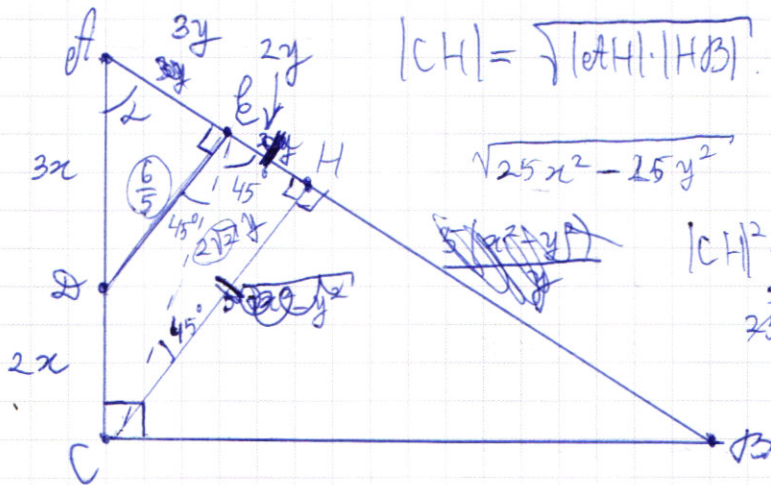 A
3y
2y
|CH| = √|AH|·|HB|
α
E
H
3x
6/5
45
√25x² - 25y²
45°
2√2 y
|CH|²
D
45°
2x
C
B